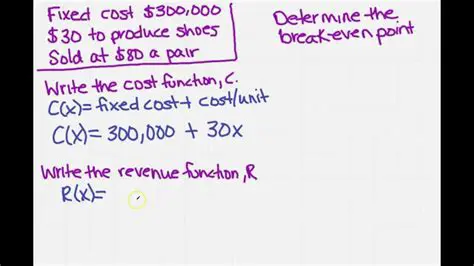 Fixed cost $300,000
$30 to produce shoes
Sold at $80 a pair
Determine the
break-even point
Write the cost function, C.
C(x)= fixed cost + cost/unit
C(x)= 300,000 + 30x
Write the revenue function, R
R(x)=